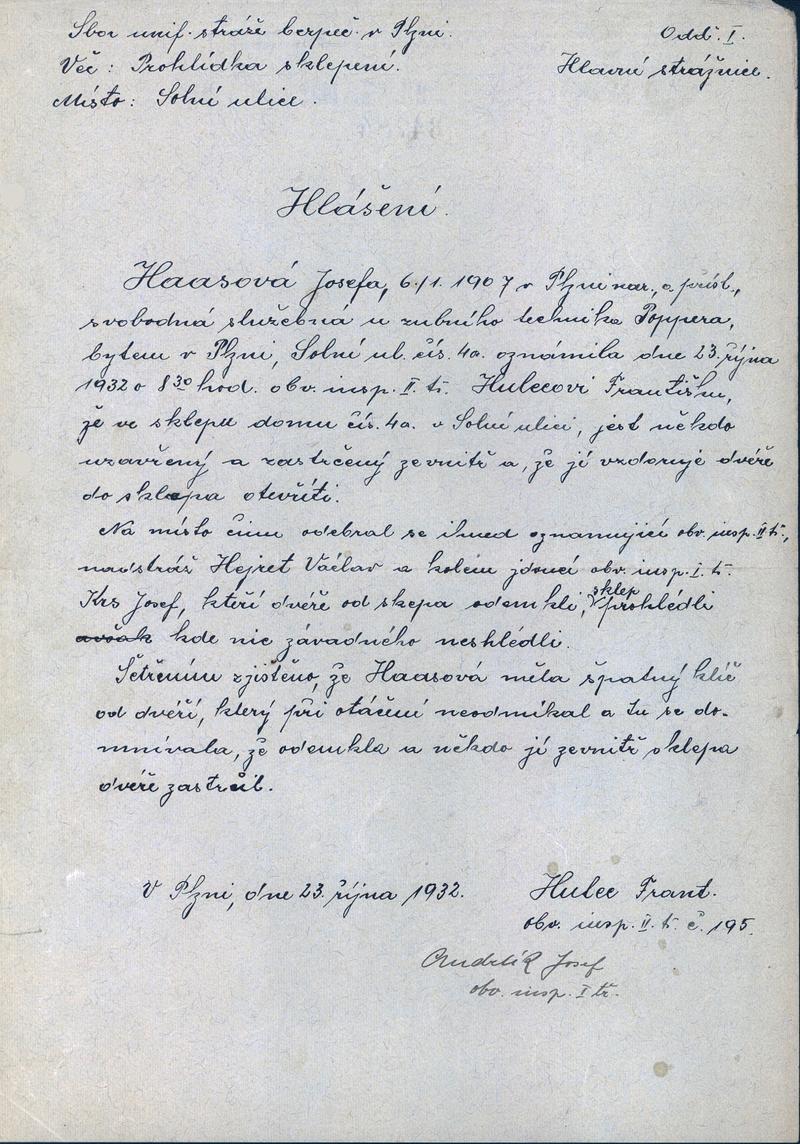 Sbor unif. stráže bezpeč. v Plzni. Odd. I.
Věc: Prohlídka sklepení. Hlavní strážnice.
Místo: Solní ulice.
Hlášení.
Haasová Josefa, 6./1. 1907 v Plzni nar., a přísl.,
svobodná služebná u zubního technika Poppera,
bytem v Plzni, Solní ul. čís. 4a. oznámila dne 23. října
1932 o 8 30 hod. obv. insp. II. tř. Hulecovi Františku,
že ve sklepu domu čís. 4a. v Solní ulici, jest někdo
uzavřený a zastrčený zevnitř a, že jí vzdoruje dvéře
do sklepa otevříti.
Na místo činu odebral se ihned oznamující obv. insp. II. tř.,
nadstráž. Hejret Václav a kolem jdoucí obv. insp. I. tř.
Krs Josef, kteří dvéře od skepa odemkli, sklep prohlédli
avšak kde nic závadného neshlédli.
Šetřením zjištěno, že Haasová měla špatný klíč
od dveří, který při otáčení neodmíkal a tu se do-
mnívala, že odemkla a někdo jí zevnitř sklepa
dvéře zastrčil.
V Plzni, dne 23. října 1932. Hulec Frant.
obv. insp. II. tř. č. 195.
Andrlík Josef
obv. insp. I tř.